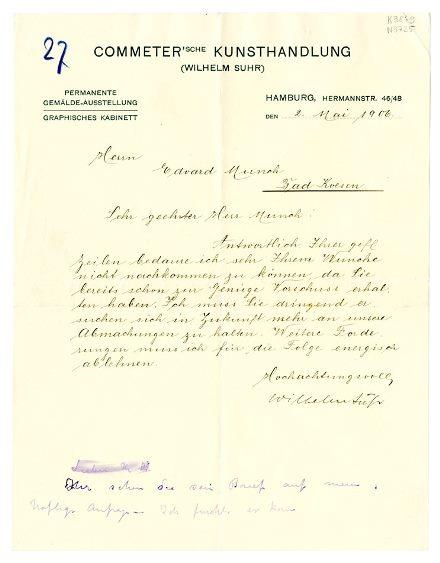 K3659
27
COMMETER'SCHE KUNSTHANDLUNG
(WILHELM SUHR)
PERMANENTE
GEMÄLDE-AUSSTELLUNG
GRAPHISCHES KABINETT
HAMBURG, HERMANNSTR. 46/48
DEN 2. Mai 1906
Herrn
Edvard Munch
Bad Kösen
Sehr geehrter Herr Munch!
Antwortlich Ihrer gefl.
Zeilen bedaure ich sehr Ihrem Wunche
nicht nachkommen zu können, da Sie
bereits schon zur Genüge Vorschuss erhal
ten haben. Ich muss Sie dringend er
suchen sich in Zukunft mehr an unsere
Abmachungen zu halten. Weitere Forde
rungen muss ich für die Folge energisch
ablehnen.
Hochachtungsvoll
Wilhelm Suhr
sehen Sie sein Brief auf mein
Anfrage Ich